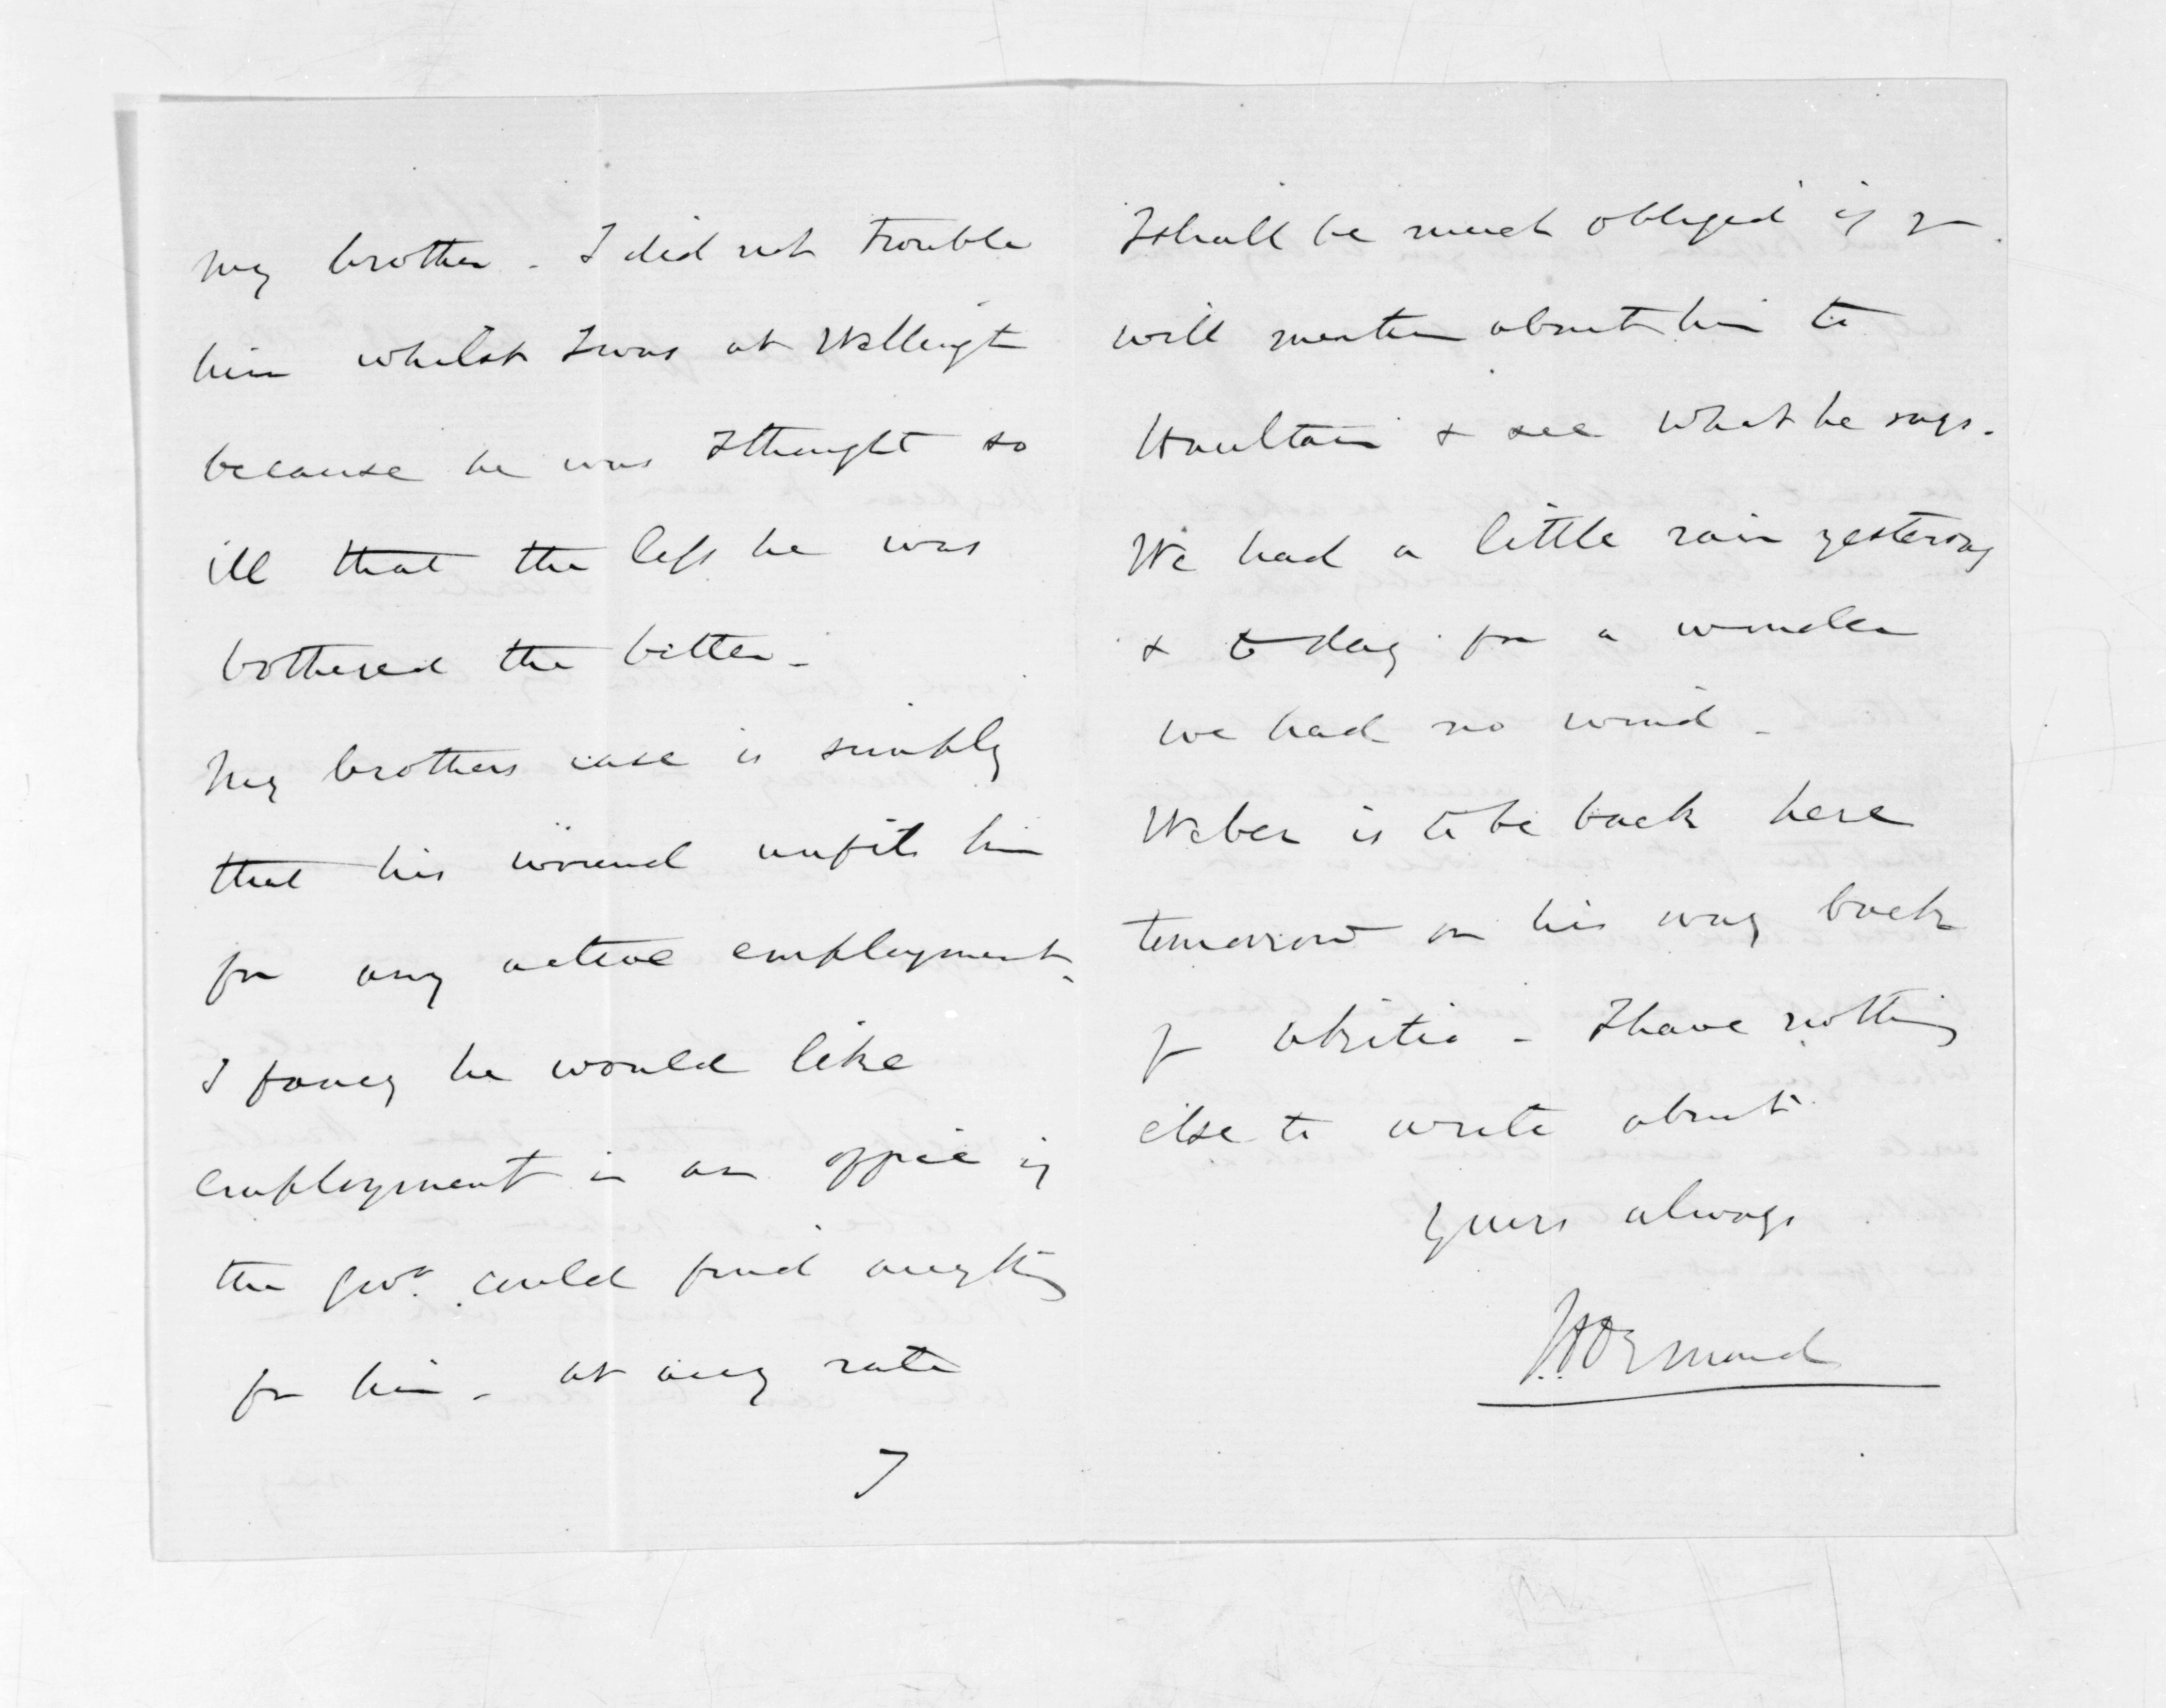 my brother - I did not trouble
him whilst I was at Wellingt
because he was I thought so
ill that the less he was
bothered the better -
My brothers case is simply
that his wound unfits him
for any active employment.
I fancy he would like
employment in an office if
the Govt. could find anything
for him - at any rate
I shall be much obliged if you
will mention about him to
Haultain & see what he says.
We had a little rain yesterday
& to day for a wonder
we had no wind -
Weber is to be back here
tomorrow on his way back
fr Obitio - I have nothing
else to write about
Yours always
JDOrmond